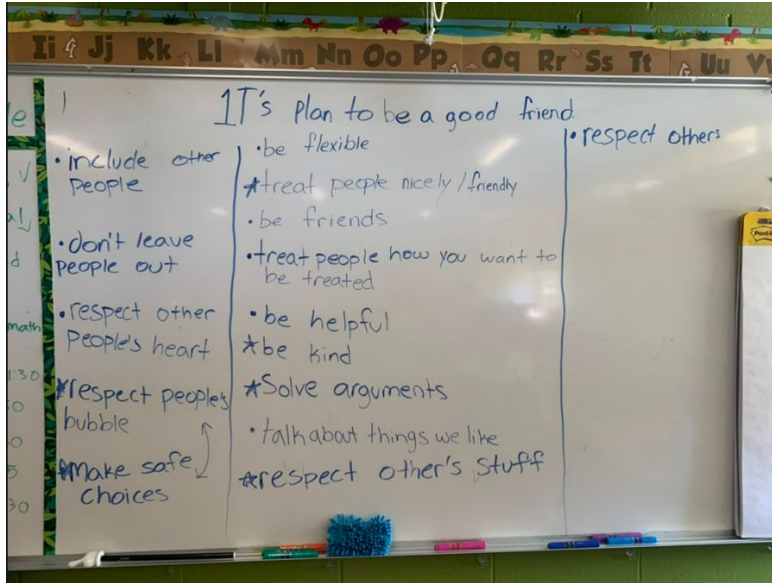 Ii Jj Kk Ll Mm Nn Oo Pp Qq Rr Ss Tt Uu Vv
1T's plan to be a good friend.
• include other
people
• don't leave
people out
• respect other
people's heart
*respect people's
bubble
*make safe
choices
• be flexible
*treat people nicely/friendly
• be friends
• treat people how you want to
be treated
• be helpful
*be kind
*Solve arguments
• talk about things we like
*respect other's stuff
• respect others
Post-it
math
1:30